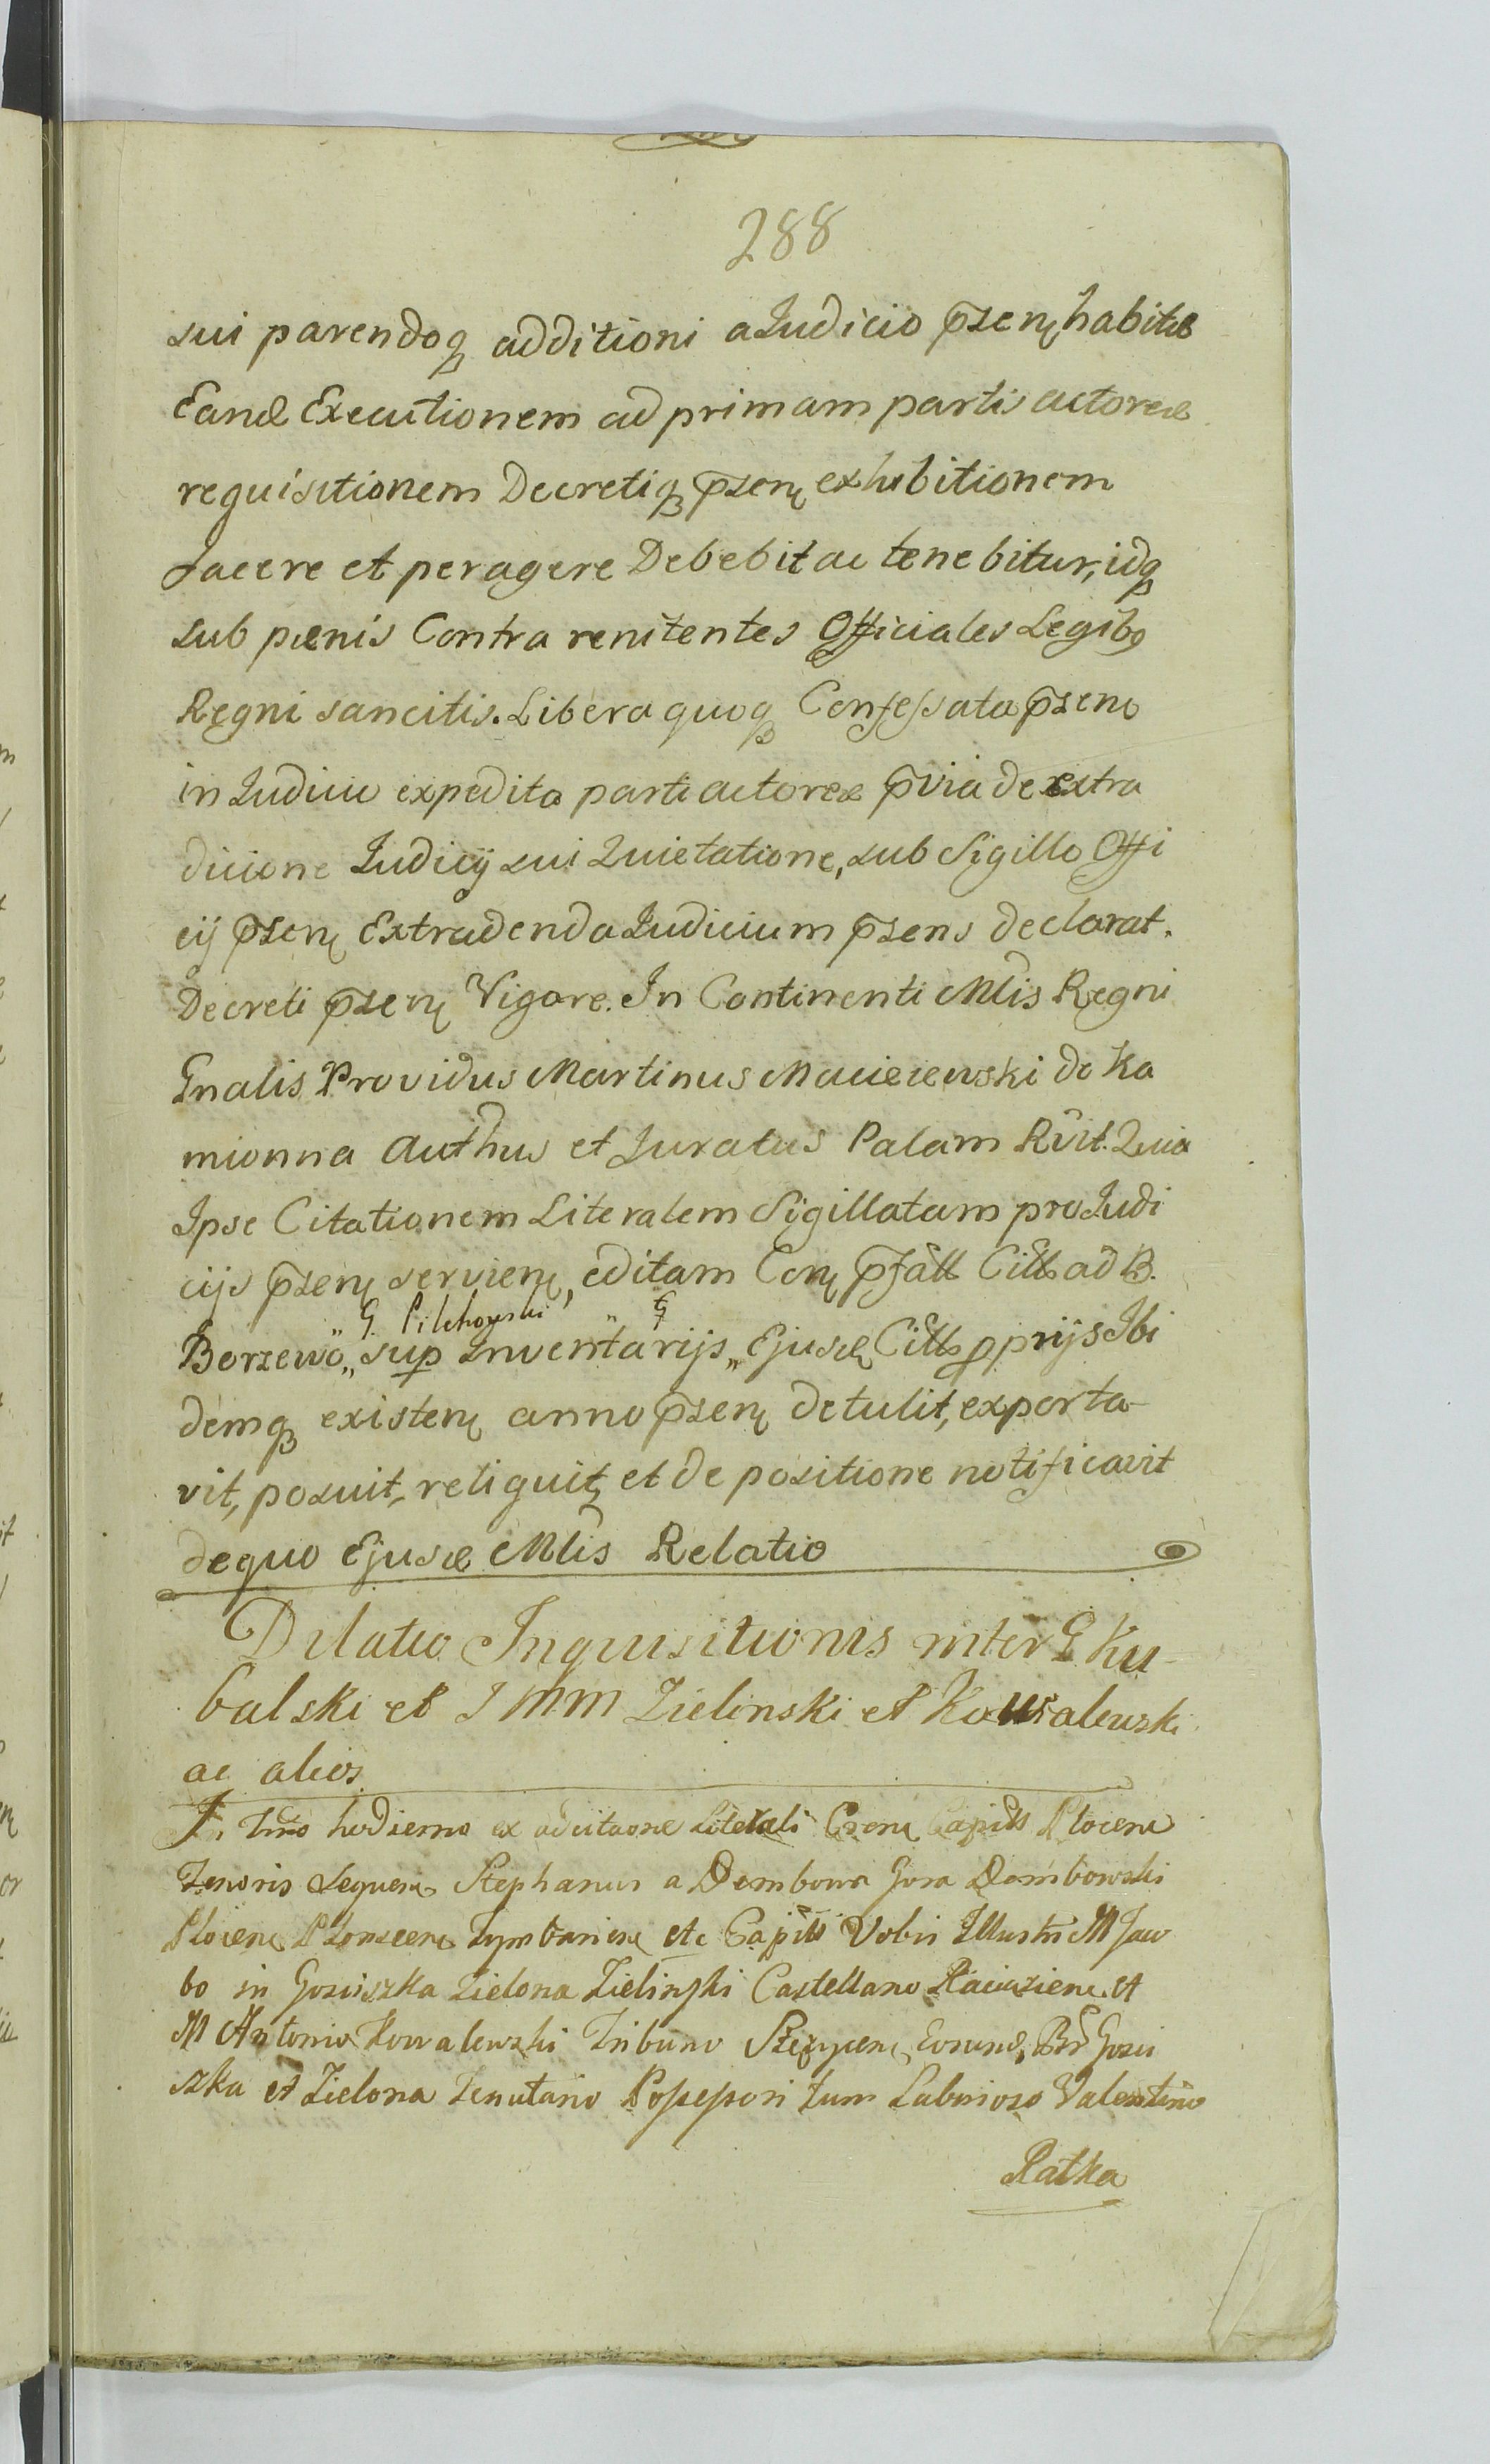 288
sui parendoq̨ additioni a Iudicio p̄senṭ habitæ
Eand Executionem ad primam partis actoreæ
requisitionem Decretiq̨ p̄senṭ exhibitionem
facere et peragere Debebit ac tenebitur, idq̨
sub pænis Contra renitentes Officiales Legibq
Regni sancitis. Libera quoq̨ Confessata p̄sens
in Iudicio expedita parti actoreæ p̄via de extra
dicione Iudicij sui Quietatione, sub Sigillo Offi
cij p̄senṭ Extradenda Iudicium p̄sens declarat.
Decreti p̄senṭ Vigore. In Continenti Mlis Regni
Gnalis Providus Martinus Macieiewski de Ka
mionna Authus et Iuratus Palam Rvit. Quia
Ipse Citationem Literalem Sigillatam pro Iudi
cijs p̄senṭ servienṭ, editam Conṭ p̄fatt Citt ad B.
„ G. Pilchowski „ G
Borzewo „ sup Inventarijs „ Ejusd Citt pprijs Ibi
demq̨ existenṭ anno p̄senṭ detulit, exporta-
vit, posuit, reliquit, et de positione notificavit
de quo Ejusd Mlis Relatio
Dilatio Inquisitionis inter G Ku-
balski et I MM Zielinski et Kowalewski
ac alios
In Tmo hodierno ex adcitaone Literali Crenṭ Capitt Plocenṭ
Tenoris Sequenṭ Stephanus a Dembowa Gora Dembowski
Plocenṭ Plonscenṭ Tymbarienṭ etc Capitt Vobis Illustri M Jaco
bo in Gosciszka Zielona Zielinski Castellano Raciazienṭ et
M Antonio Kowalewski Tribuno Stezycenṭ, Eorund, Br̄ Gosci
szka et Zielona Tenutario Possessori tum Laborioso Valentino
Ratka